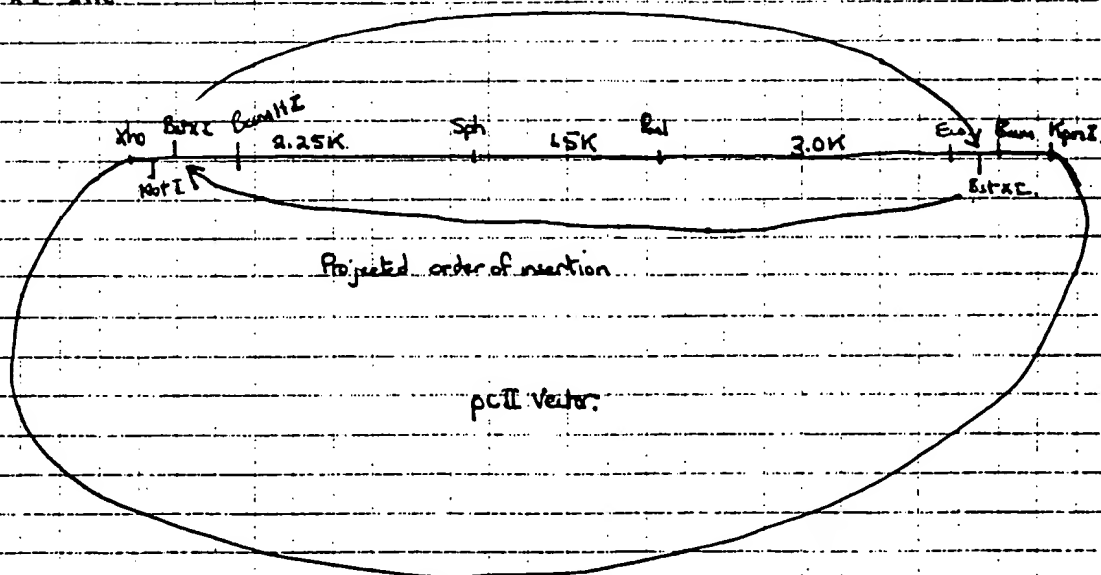 Xho BstXI BamHI 2.25K Sph 1.5K 3.0K Bam KpnI
NotI BstXI
Projected order of insertion
pcII Vector.